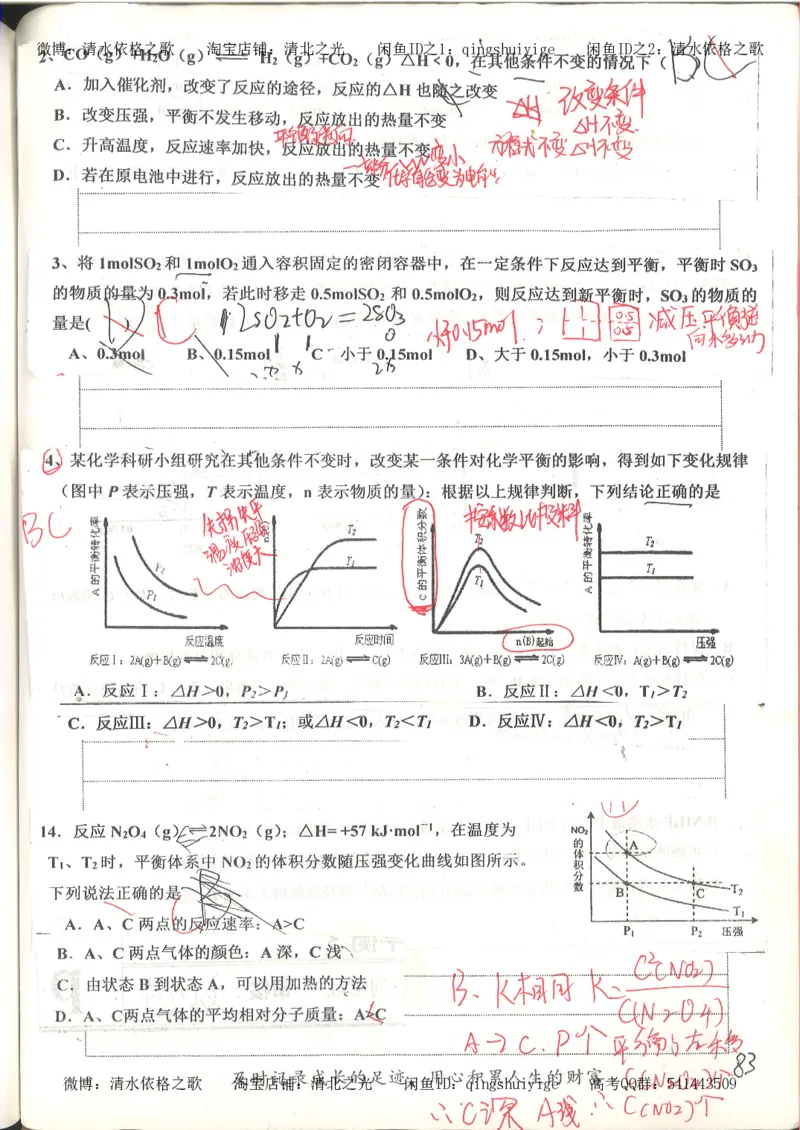 微博：清水依格之歌 淘宝店铺：清北之光 闲鱼ID之1：qingshuiyige 闲鱼ID之2：清水依格之歌
2、CO（g）+H₂O（g）⇌ H₂（g）+CO₂（g）△H＜0，在其他条件不变的情况下（ BC
A．加入催化剂，改变了反应的途径，反应的△H 也随之改变
△H 改变条件
△H不变
B．改变压强，平衡不发生移动，反应放出的热量不变
方程式不变△H不变
C．升高温度，反应速率加快，反应放出的热量不变
变小
D．若在原电池中进行，反应放出的热量不变
化学能变为电能
3、将 1molSO₂ 和 1molO₂ 通入容积固定的密闭容器中，在一定条件下反应达到平衡，平衡时 SO₃
的物质的量为 0.3mol，若此时移走 0.5molSO₂ 和 0.5molO₂，则反应达到新平衡时，SO₃ 的物质的
量是(
2SO₂+O₂=2SO₃
1 1 0
2x x 2x
小于0.15mol
1 1
0.5 0.5
减压平衡逆
向移动
A、0.3mol B、0.15mol C 小于 0.15mol D、大于 0.15mol，小于 0.3mol
4、某化学科研小组研究在其他条件不变时，改变某一条件对化学平衡的影响，得到如下变化规律
（图中 P 表示压强，T 表示温度，n 表示物质的量）：根据以上规律判断，下列结论正确的是
BC
先拐先平
按系数比投料
A 的平衡转化率 P₂ P₁ 反应温度
n(C) T₂ T₁ 反应时间
C 的平衡体积分数 T₂ T₁ n(B)起始
A 的平衡转化率 T₂ T₁ 压强
反应Ⅰ：2A(g)+B(g)⇌2C(g) 反应Ⅱ：2A(g)⇌C(g) 反应Ⅲ：3A(g)+B(g)⇌2C(g) 反应Ⅳ：A(g)+B(g)⇌2C(g)
A．反应Ⅰ：△H＞0，P₂＞P₁ B．反应Ⅱ：△H＜0，T₁＞T₂
C．反应Ⅲ：△H＞0，T₂＞T₁；或△H＜0，T₂＜T₁ D．反应Ⅳ：△H＜0，T₂＞T₁
14．反应 N₂O₄（g）⇌2NO₂（g）；△H= +57 kJ·mol⁻¹，在温度为
T₁、T₂ 时，平衡体系中 NO₂ 的体积分数随压强变化曲线如图所示。
下列说法正确的是
NO₂的体积分数 A B C T₂ T₁ P₁ P₂ 压强
A．A、C 两点的反应速率：A>C
B．A、C 两点气体的颜色：A 深，C 浅
C．由状态 B 到状态 A，可以用加热的方法
D．A、C两点气体的平均相对分子质量：A>C
B、K相同 K=C²(NO₂)/C(N₂O₄)
A→C．P个 平衡向左移
C(N₂O₄)个
∴C深 A浅 ∴C(NO₂)个
83
及时记录成长的足迹，用心积累人生的财富
微博：清水依格之歌 淘宝店铺：清北之光 闲鱼ID：qingshuiyige 高考QQ群：541443509